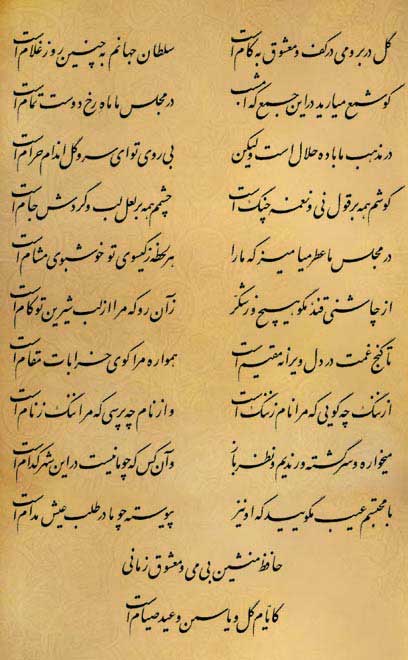 گل در بر و می در کف و معشوق به کام است سلطان جهانم به چنین روز غلام است
گو شمع میارید در این جمع که امشب در مجلس ما ماه رخ دوست تمام است
در مذهب ما باده حلال است ولیکن بی روی تو ای سرو گل اندام حرام است
گوشم همه بر قول نی و نغمه چنگ است چشمم همه بر لعل لب و گردش جام است
در مجلس ما عطر میامیز که ما را هر لحظه ز گیسوی تو خوشبوی مشام است
از چاشنی قند مگو هیچ و ز شکر زآن رو که مرا از لب شیرین تو کام است
تا گنج غمت در دل ویرانه مقیم است همواره مرا کوی خرابات مقام است
از ننگ چه گویی که مرا نام ز ننگ است واز نام چه پرسی که مرا ننگ ز نام است
میخواره و سرگشته و رندیم و نظر باز وآن کس که چو ما نیست در این شهر کدام است
با محتسبم عیب مگویید که او نیز پیوسته چو ما در طلب عیش مدام است
حافظ منشین بی می و معشوق زمانی
کایام گل و یاسمن و عید صیام است